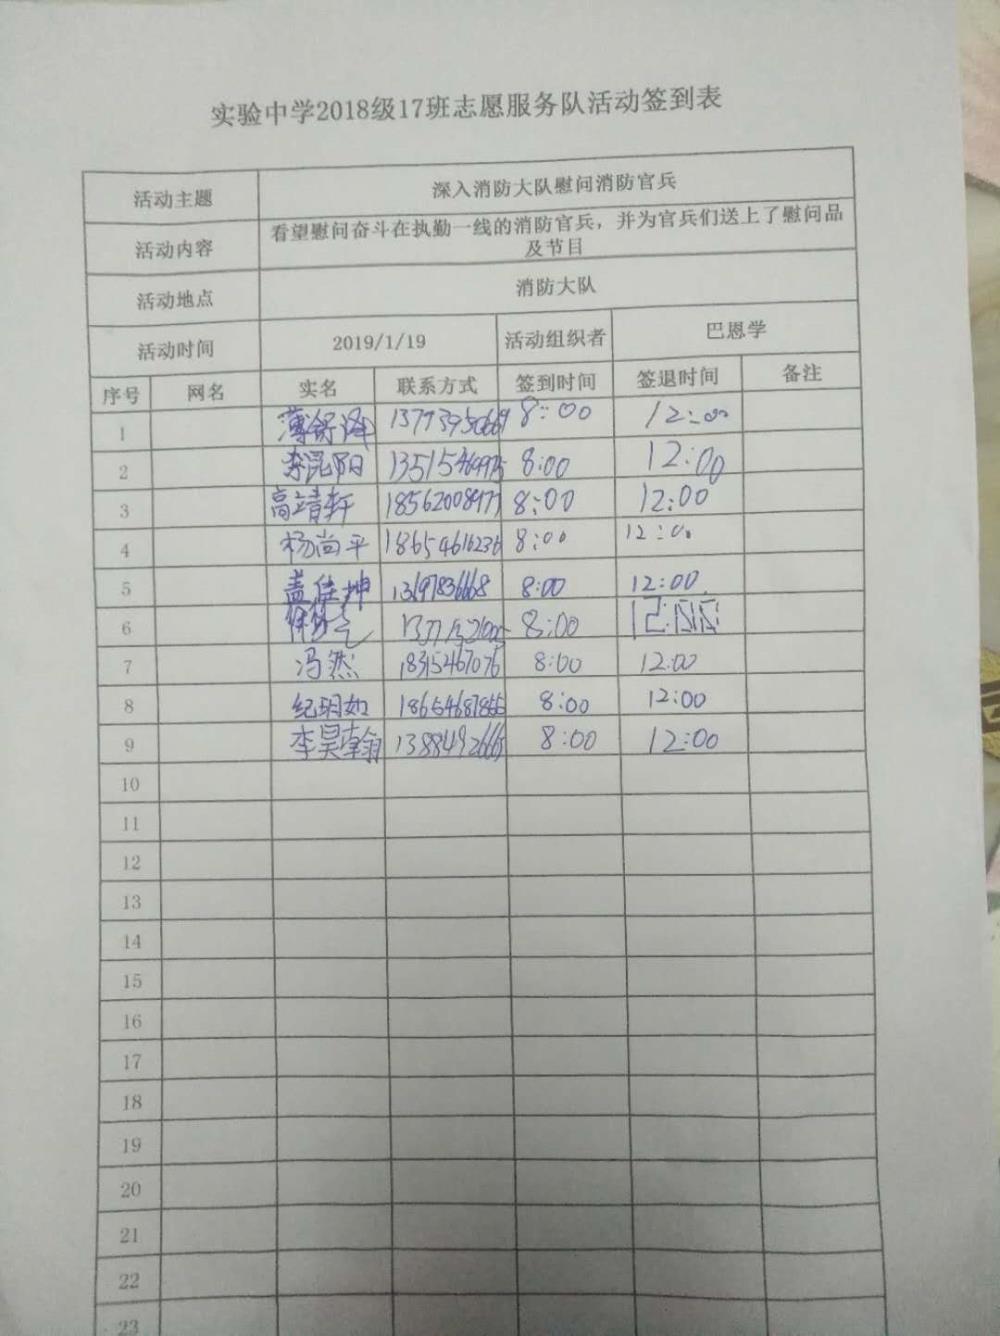 实验中学2018级17班志愿服务队活动签到表
活动主题 深入消防大队慰问消防官兵
活动内容 看望慰问奋斗在执勤一线的消防官兵，并为官兵们送上了慰问品
及节目
活动地点 消防大队
活动时间 2019/1/19 活动组织者 巴恩学
序号 网名 实名 联系方式 签到时间 签退时间 备注
1 薄舒泽 8:00 12:00
2 李昆阳 8:00 12:00
3 高靖轩 8:00 12:00
4 杨尚平 18654616236 8:00 12:00
5 盖佳坤 8:00 12:00
6 8:00 12:00
7 冯然 18315467076 8:00 12:00
8 纪玥如 8:00 12:00
9 李昊翰 8:00 12:00
10
11
12
13
14
15
16
17
18
19
20
21
22
23